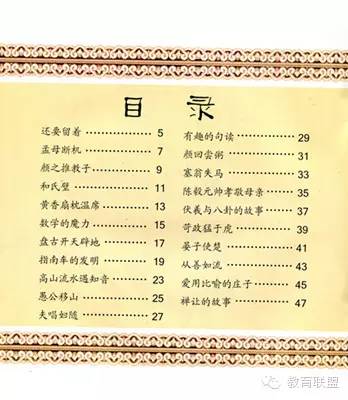 目 录
还要留着 ………………… 5
孟母断机 ………………… 7
颜之推教子 ……………… 9
和氏璧 …………………… 11
黄香扇枕温席 …………… 13
数学的魔力 ……………… 15
盘古开天辟地 …………… 17
指南车的发明 …………… 19
高山流水遇知音 ………… 23
愚公移山 ………………… 25
夫唱妇随 ………………… 27
有趣的句读 ……………… 29
颜回尝粥 ………………… 31
塞翁失马 ………………… 33
陈毅元帅孝敬母亲 ……… 35
伏羲与八卦的故事 ……… 37
苛政猛于虎 ……………… 39
晏子使楚 ………………… 41
从善如流 ………………… 43
爱用比喻的庄子 ………… 45
禅让的故事 ……………… 47
教育联盟